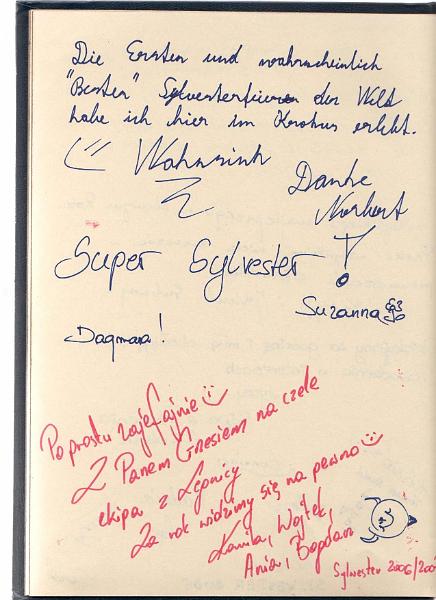 Die Ersten und wahrscheinlich
"Besten" Sylvesterfeieren der Welt
habe ich hier im Krokus erlebt.
Wahnsinn
Danke
Norbert
Super Sylvester !
Suzanna
Dagmara!
Po prostu zajefajnie
Z Panem Grzesiem na czele
ekipa z Legnicy
Za rok widzimy się na pewno
Kamila, Wojtek,
Ania, Bogdan
Sylwester 2006/200